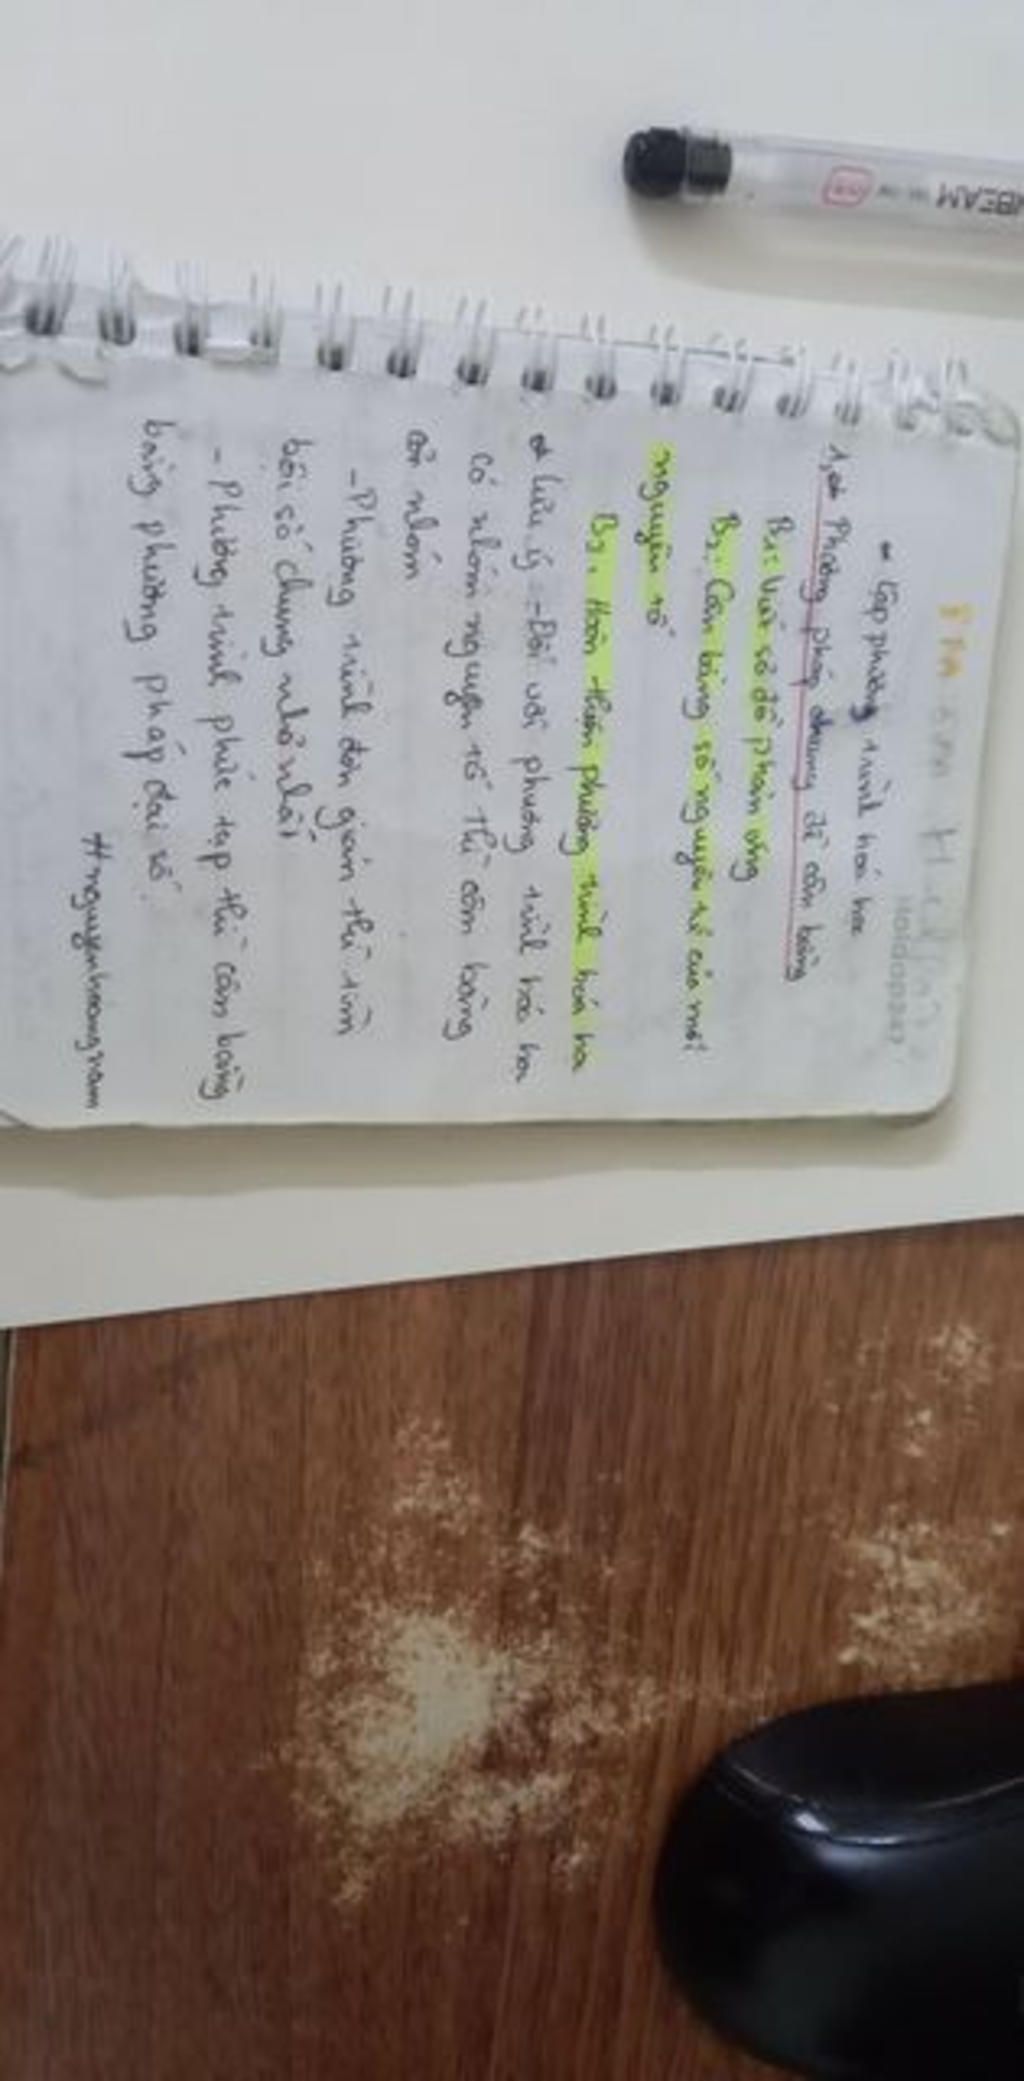 * Lập phương trình hoá học
1, Phương pháp chung để cân bằng
B1: Viết sơ đồ phản ứng
B2: Cân bằng số nguyên tử của mỗi
nguyên tố
B3: Hoàn thiện phương trình hoá học
* Lưu ý: - Đối với phương trình hoá học
có nhóm nguyên tố thì cân bằng
cả nhóm
- Phương trình đơn giản thì tìm
bội số chung nhỏ nhất
- Phương trình phức tạp thì cân bằng
bằng phương pháp đại số.
#nguyenhoangnam
BEAM